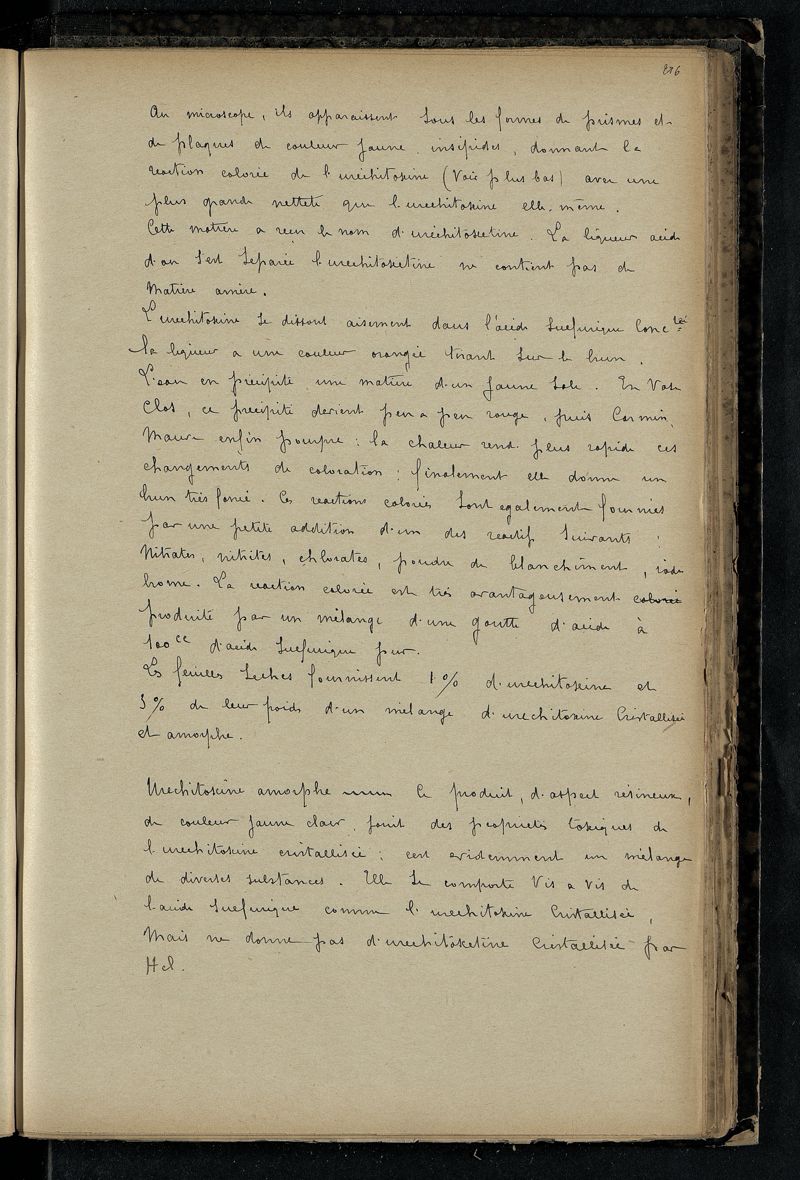 216
Au microscope, ils apparaissent sous les formes de prismes et
de plaques de couleur jaune, insipides, donnant la
reaction colorée de l'urechitoxine (Voir plus bas) avec une
plus grande netteté que l'urechitoxine elle-même.
Cette matière a reçu le nom d'urechitoxetine. La liqueur acide
d'ou s'est séparée l'urechitoxetine ne contient pas de
Matière amère.
L'urechitoxine se dissout aisement dans l'acide sulfurique Conc
la liqueur a une couleur orangée tirant sur le brun.
L'eau en précipite une matière d'un jaune sale. En Vase
Clos, ce précipité devient peu a peu rouge, puis Carmin,
Mauve enfin pourpre : la chaleur rend plus rapide ces
changements de coloration ; finalement elle donne un
brun très foncé. Ces reactions colorées sont egalement fournies
par une petite addition d'un des reactif suivants :
Nitrates, nitrites, chlorates, poudre de blanchiment, iode
brome. La reaction colorée est très avantageusement colorée
produite par un mélange d'une goutte d'acide à
100cc d'acide sulfurique pur.
Les feuilles sèches fournissent 1 % d'urechitoxine et
3 % de leur poids d'un mélange d'urechitoxine Cristallisée
et amorphe.
Urechitoxine amorphe Ce produit, d'aspect résineux,
de couleur jaune clair, jouit des proprietés toxiques de
l'urechitoxine cristallisée ; c'est evidemment un mélange
de diverses substances. Elle se comporte Vis a Vis de
l'acide sulfurique comme l'urechitoxine Cristallisée,
Mais ne donne pas d'urechitoxetine Cristallisée par
Hcl.